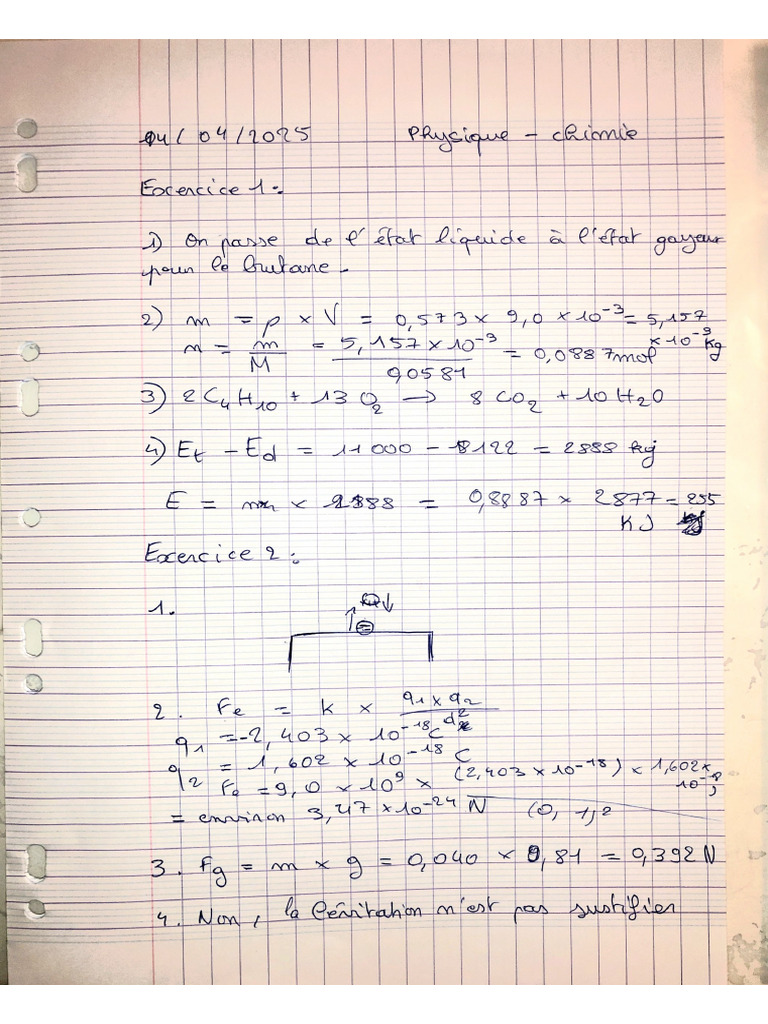 04/04/2025 Physique - chimie
Excercice 1 :
1) On passe de l'état liquide à l'état gazeux
pour le butane.
2) m = ρ × V = 0,573 × 9,0 × 10⁻³ = 5,157
× 10⁻³ kg
n = m/M = 5,157 × 10⁻³ / 90581 = 0,0887 mol
3) 2 C₄H₁₀ + 13 O₂ → 8 CO₂ + 10 H₂O
4) Et - Ed = 11 000 - 8122 = 2888 kj
E = n × 2888 = 0,8887 × 2877 = 255
KJ
Excercice 2 :
1.
2. Fe = k × q1 × q2 / d²
q1 = -2,403 × 10⁻¹⁸ C
q2 = 1,602 × 10⁻¹⁸ C
Fe = 9,0 × 10⁹ × (2,403 × 10⁻¹⁸) × 1,602 ×
= environ 3,47 × 10⁻²⁴ N (0,1)²
3. Fg = m × g = 0,040 × 9,81 = 0,392 N
4. Non, la lévitation n'est pas justifier